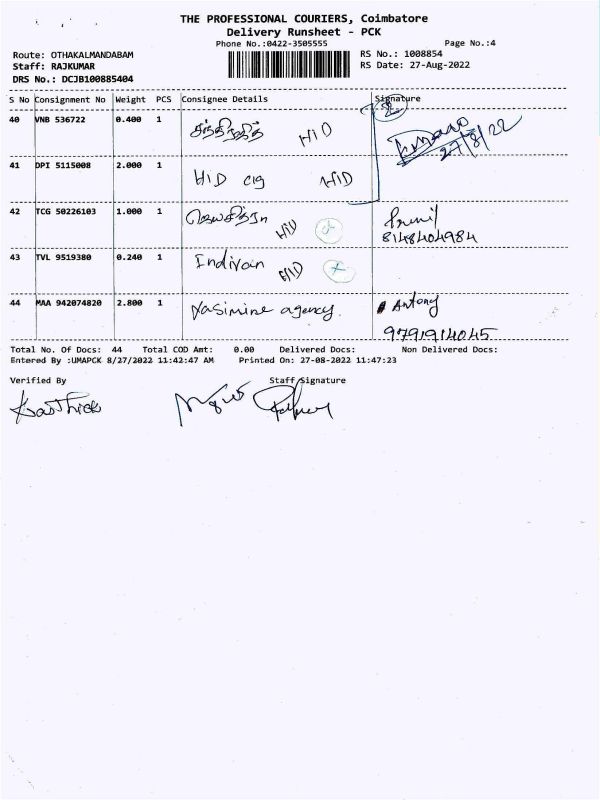 THE PROFESSIONAL COURIERS, Coimbatore
Delivery Runsheet - PCK
Phone No.:0422-3505555
Page No.:4
Route: OTHAKALMANDABAM
RS No.: 1008854
Staff: RAJKUMAR
RS Date: 27-Aug-2022
DRS No.: DCJB100885404
S No Consignment No Weight PCS Consignee Details Signature
2
40 VNB 536722 0.400 1 HID
27/8/22
41 DPI 5115008 2.000 1 HID HID
42 TCG 50226103 1.000 1 HID
8148404984
43 TVL 9519380 0.240 1 Indiyan HID
44 MAA 942074820 2.800 1 Yasimine agency. Antony
9791914045
Total No. Of Docs: 44 Total COD Amt: 0.00 Delivered Docs: Non Delivered Docs:
Entered By :UMAPCK 8/27/2022 11:42:47 AM Printed On: 27-08-2022 11:47:23
Verified By Staff Signature
Karthick